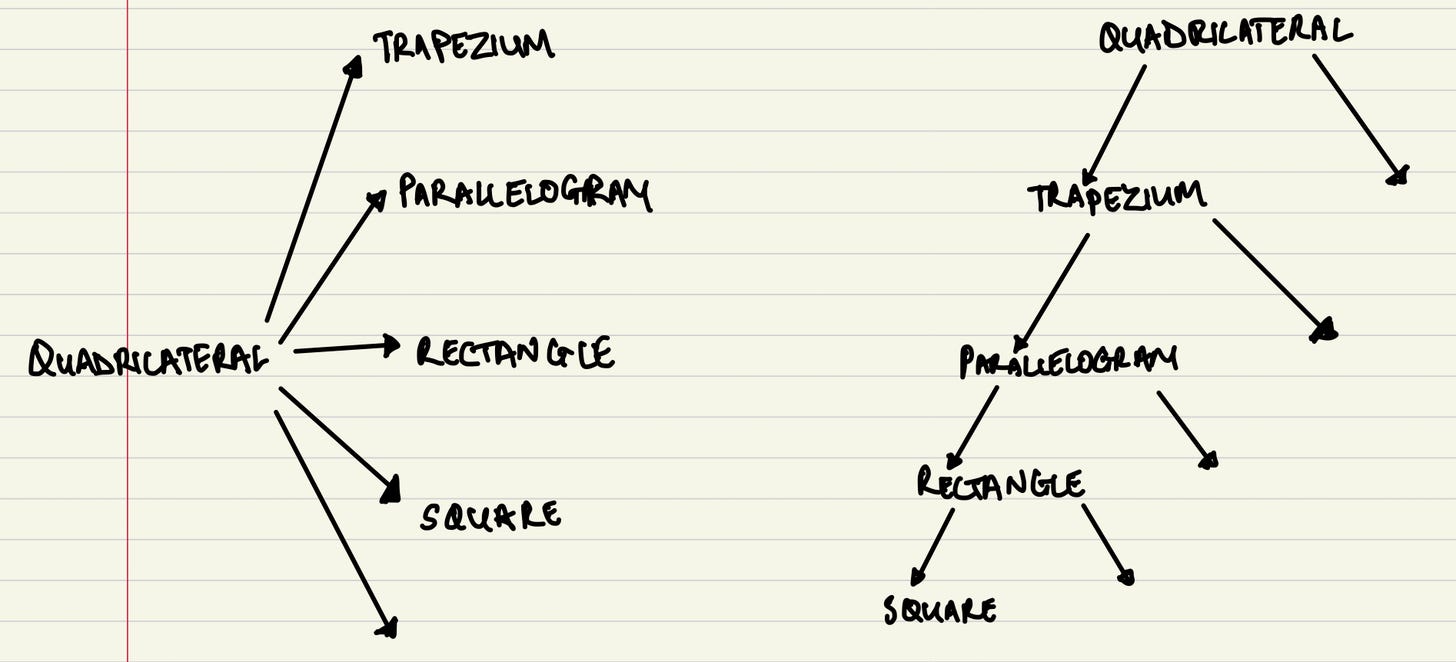 TRAPEZIUM
PARALLELOGRAM
QUADRILATERAL
RECTANGLE
SQUARE
QUADRILATERAL
TRAPEZIUM
PARALLELOGRAM
RECTANGLE
SQUARE